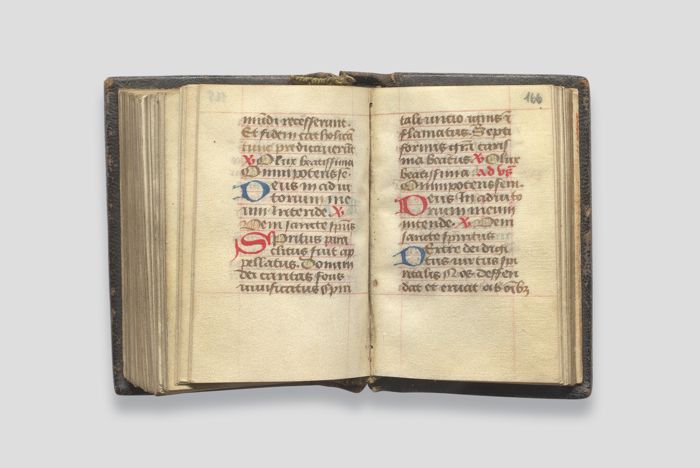 mūdi recesserunt.
Et fidem catholicā
tunc predicaverūt
℣ O lux beatissima
Omnipotens se
Deus in adiu
torium me
um intende. ℣
Veni sancte sp̄us
Spiritus para
clitus fuit ap
pellatus. Donum
dei caritas fons
vivificatus spm
166
talis unctio ignis ī
flamatus. Septi
formis gr̄a caris
ma beatus ℣ O lux
beatissima. ad v̄s
Omnipotens sem.
Deus in adiuto
rium meum
intende. ℣ Veni
sancte spiritus
Dextre dei digi
tus virtus spi
ritalis Nos deffen
dat et eruat ab oībꝫ